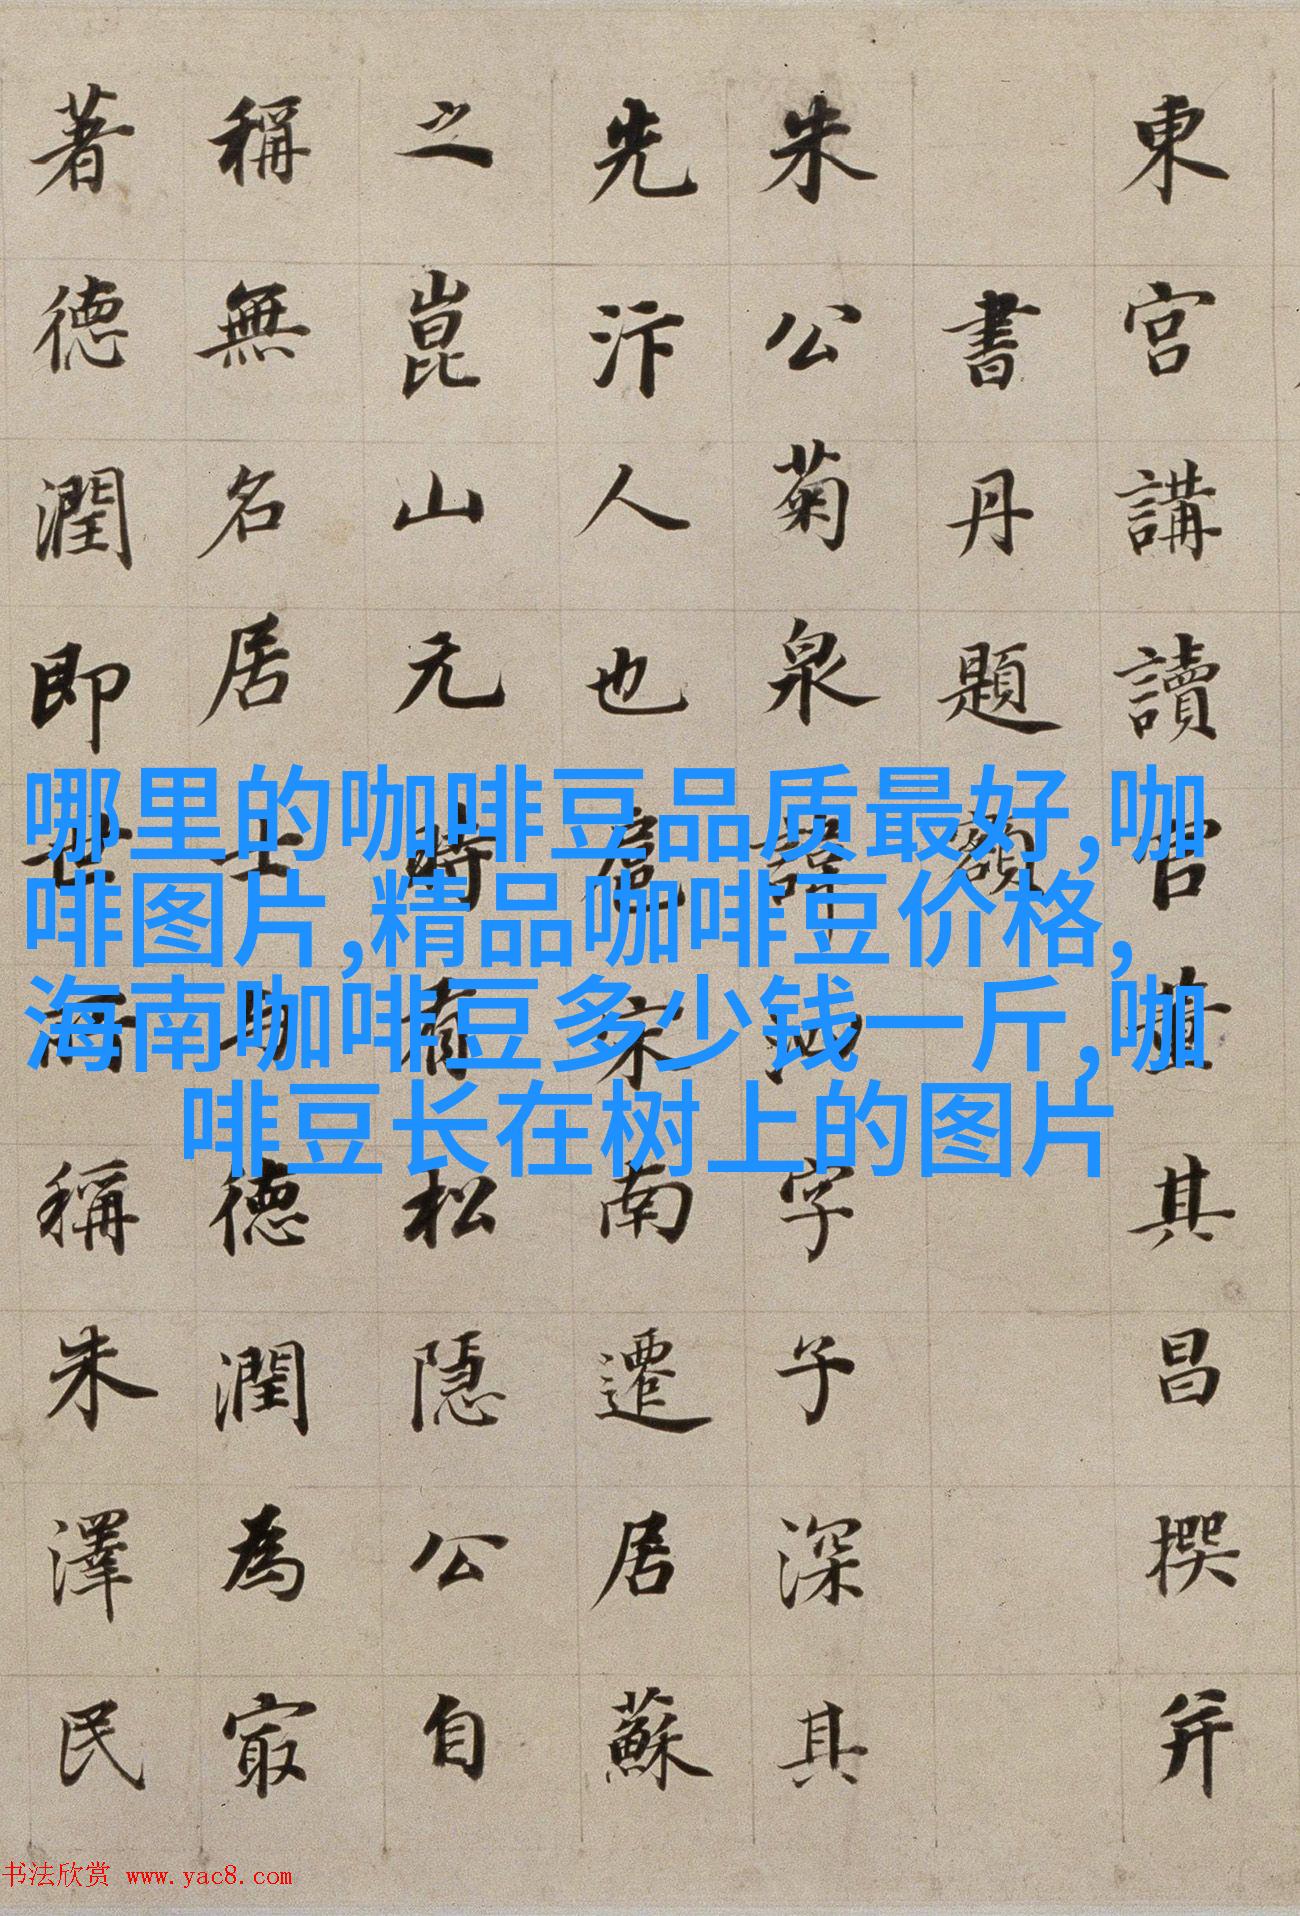 東宮講讀官董其昌撰并
書丹題額
朱公菊泉諱字子深其
先汴人也扈宋南遷居蘇
之崑山元時有松隱公自
稱無名居士与德潤為㝡
著德潤即世而稱朱澤民
哪里的咖啡豆品质最好,咖
啡图片,精品咖啡豆价格,
海南咖啡豆多少钱一斤,咖
啡豆长在树上的图片
书法欣赏 www.yac8.com